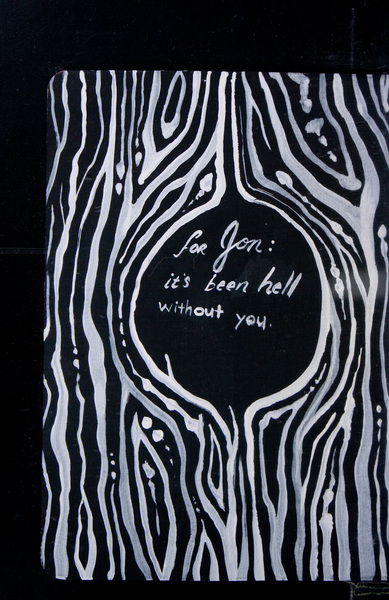 for Jon:
it's been hell
without you.